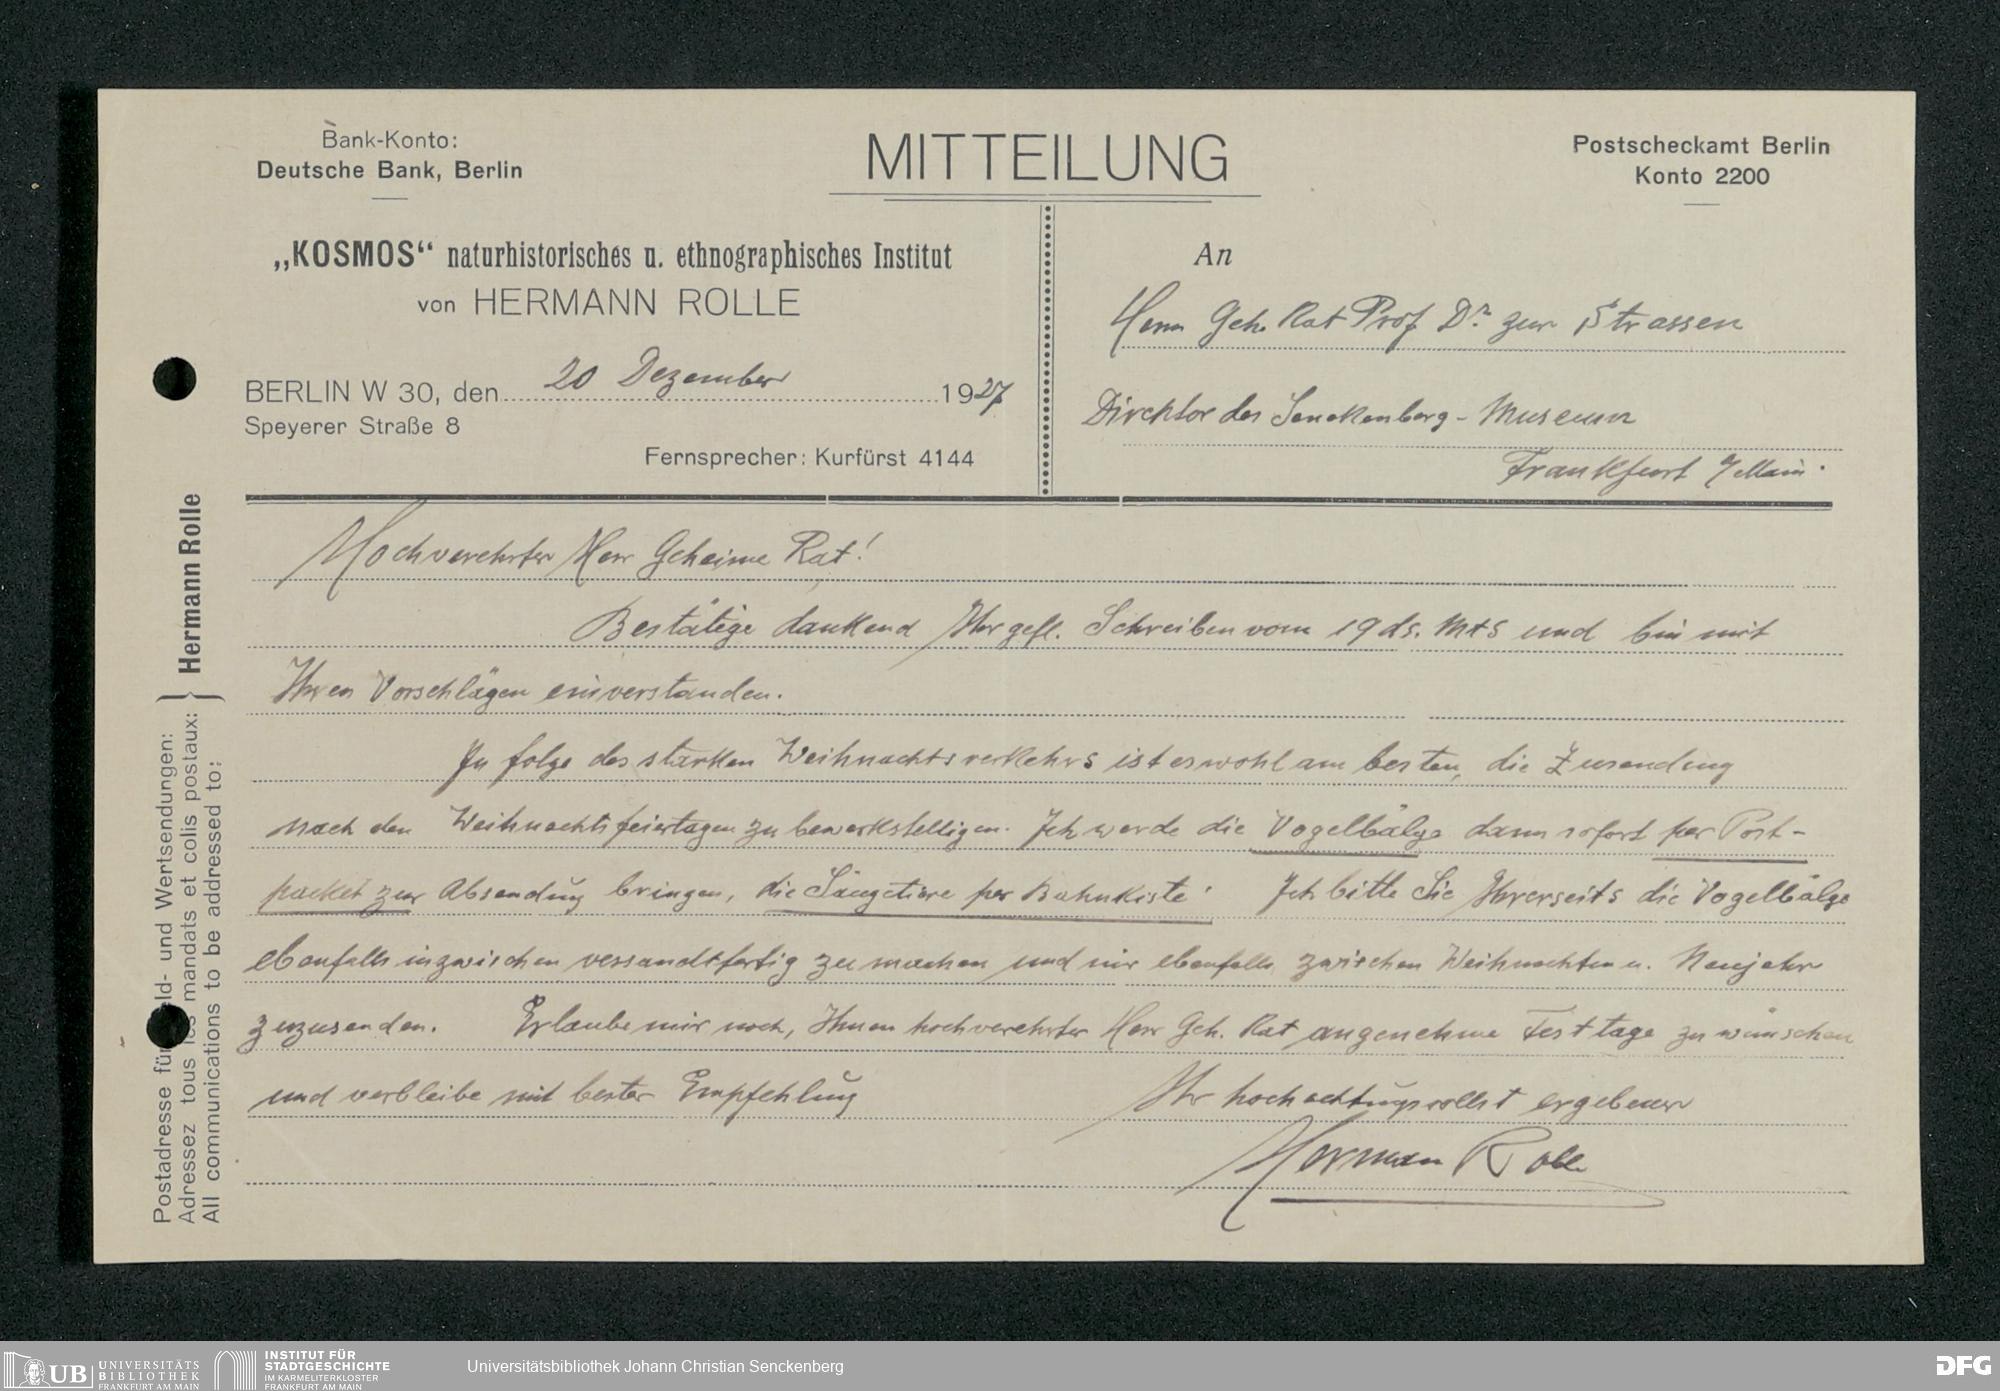 Bank-Konto:
Deutsche Bank, Berlin
MITTEILUNG
Postscheckamt Berlin
Konto 2200
„KOSMOS“ naturhistorisches u. ethnographisches Institut
von HERMANN ROLLE
BERLIN W 30, den 20 Dezember 1927
Speyerer Straße 8
Fernsprecher: Kurfürst 4144
An
Herrn Geh. Rat Prof Dr zur Strassen
Direktor des Senckenberg-Museum
Frankfurt /Main.
Hochverehrter Herr Geheime Rat!
Bestätige dankend Ihr gefl. Schreiben vom 19 ds. Mts und bin mit
Ihren Vorschlägen einverstanden.
In folge des starken Weihnachtsverkehrs ist es wohl am besten, die Zusendung
nach den Weihnachtsfeiertagen zu bewerkstelligen. Ich werde die Vogelbälge dann sofort per Post-
packet zur Absendung bringen, die Säugetiere per Bahnkiste! Ich bitte Sie Ihrerseits die Vogelbälge
ebenfalls inzwischen versandtfertig zu machen und mir ebenfalls zwischen Weihnachten u. Neujahr
zuzusenden. Erlaube mir noch, Ihnen hochverehrter Herr Geh. Rat angenehme Festtage zu wünschen
und verbleibe mit bester Empfehlung
Ihr hochachtungsvollst ergebener
Herman Rolle
Postadresse für Geld- und Wertsendungen:
Adressez tous les mandats et colis postaux:
All communications to be addressed to:
} Hermann Rolle
UB UNIVERSITÄTS
BIBLIOTHEK
FRANKFURT AM MAIN
INSTITUT FÜR
STADTGESCHICHTE
IM KARMELITERKLOSTER
FRANKFURT AM MAIN
Universitätsbibliothek Johann Christian Senckenberg
DFG